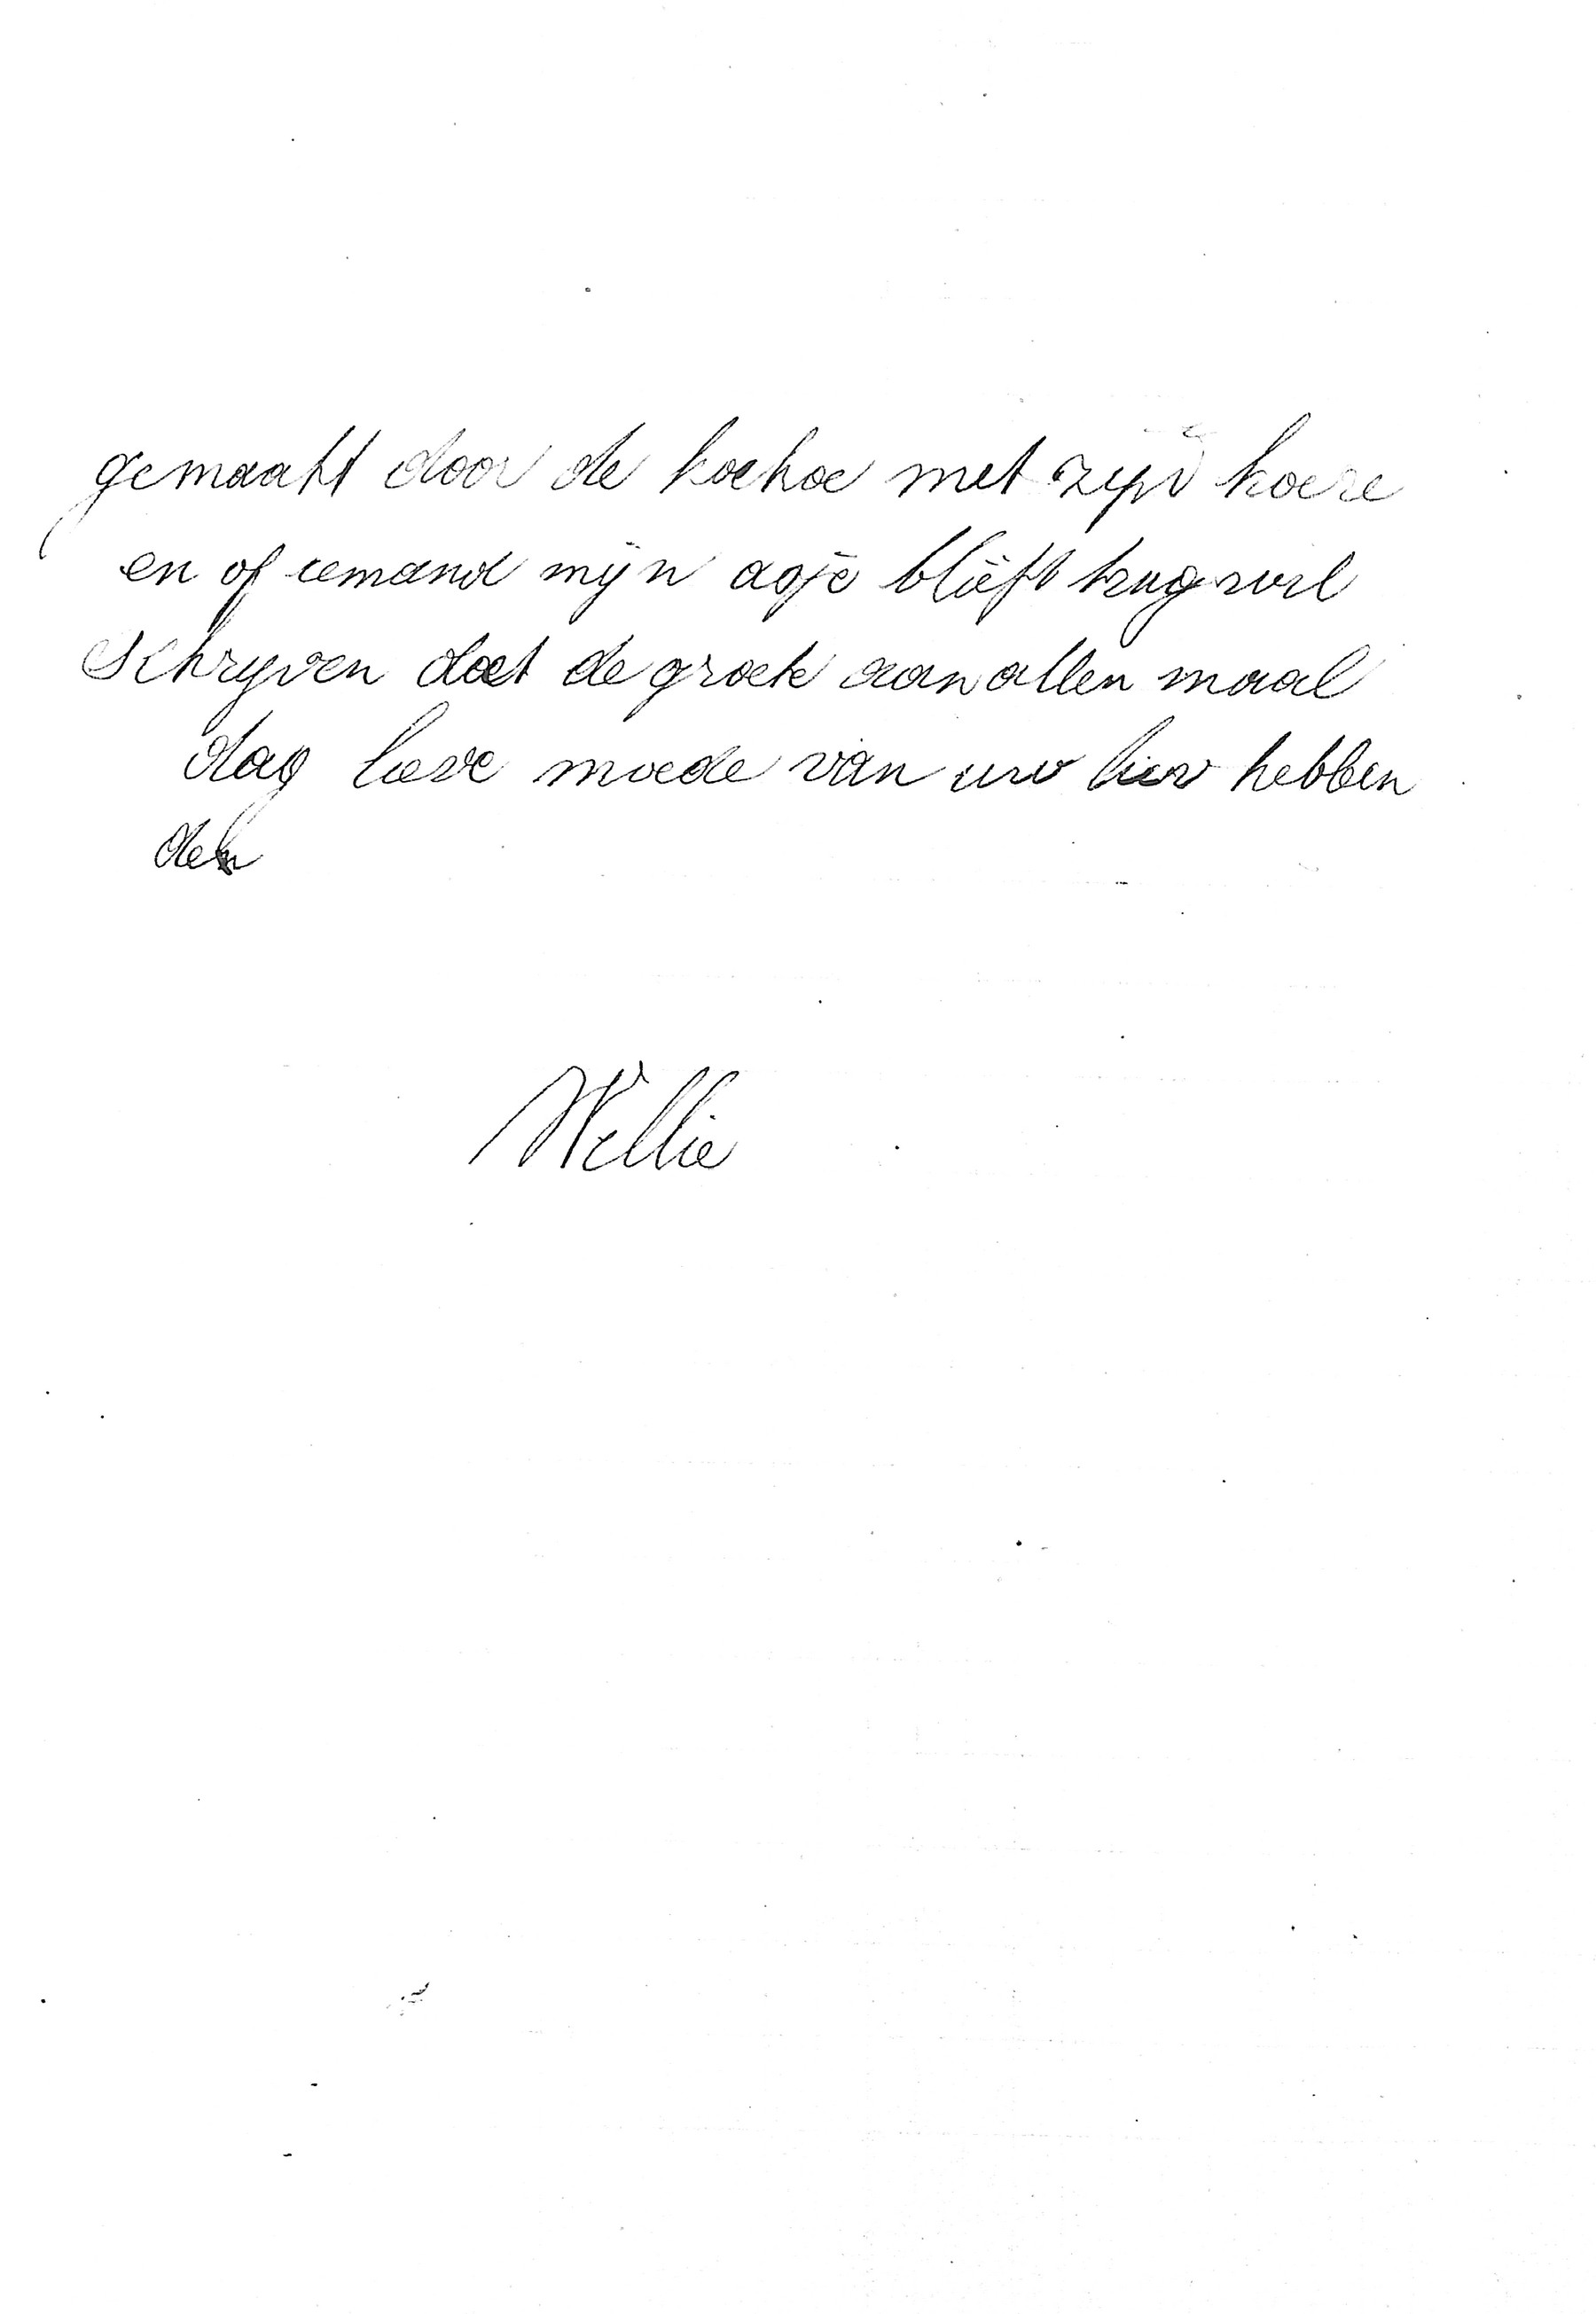 gemaakt door de koekoe met zijn koere
en of iemand mijn asje blieft trug wil
schrijven doet de groete aan allen maal
dag lieve moede van uw lier hebben
den
Willie